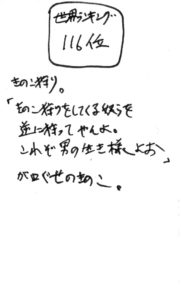 世界ランキング
116位
きのこ狩り。
「きのこ狩りをしてくる奴らを
逆に狩ってやんよ。
これぞ男の生き様よお」
が口ぐせのきのこ。